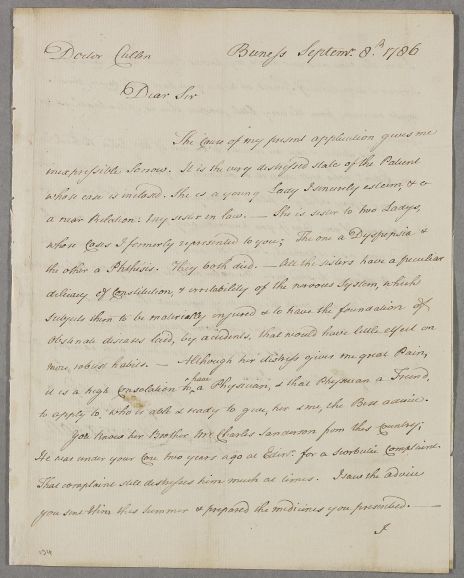 Doctor Cullen Buness Septemr. 8.th 1786
Dear Sir
The Cause of my present application gives me
inexpressible Sorrow. It is the very distressed state of the Patient
whose case is inclosed. She is a young Lady I sincerely esteem, &
a near Relation: my sister in law. — She is sister to two Ladys,
whose Cases I formerly represented to you; The one a Dyspepsia &
the other a Phthisis. They both died. — All the sisters have a peculiar
delicacy of Constitution, & irritability of the nervous System, which
subjects them to be materially injured & to have the foundation of
obstinate diseases laid, by accidents, that would have little effect on
more robust habits. — Although her distress gives me great Pain,
it is a high Consolation to have a Physician, & that Physician a Friend,
to apply to, who is able & ready to give, her & me, the Best advice.
You know her Brother Mr. Charles Sanderson from this Country;
He was under your Care two years ago at Edinr. for a scorbutic Complaint.
That complaint still distresses him much at times. I saw the advice
you sent Him this summer & prepared the medicines you prescribed. —
I